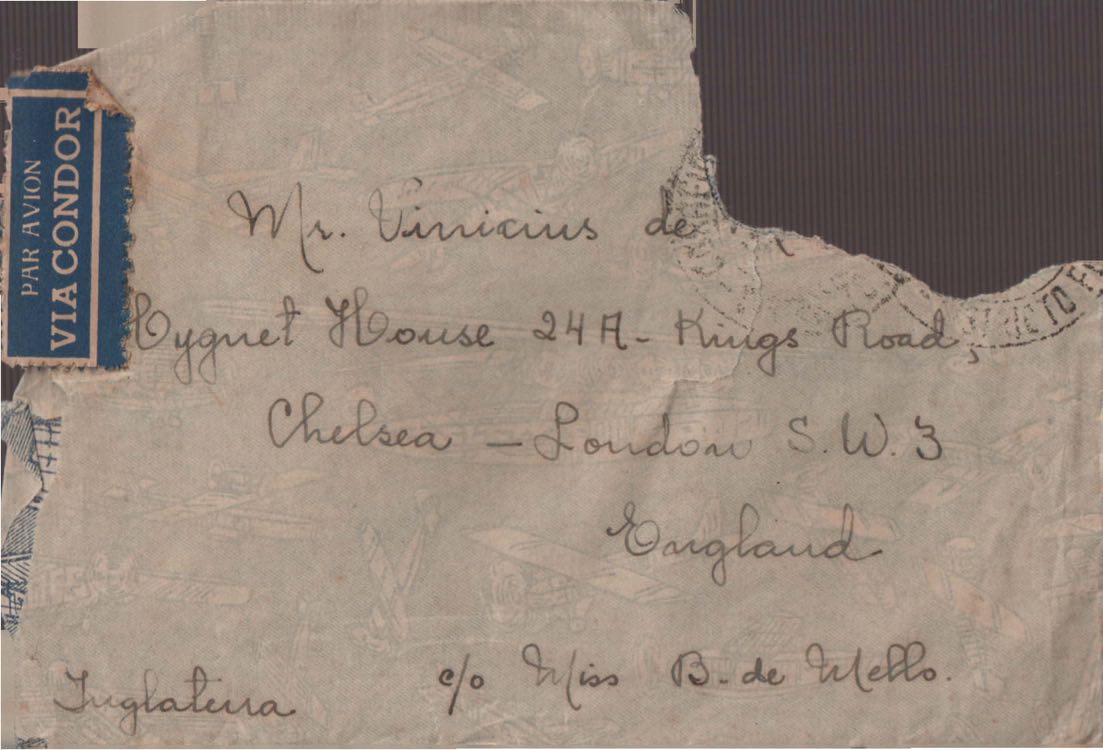 PAR AVION
VIA CONDOR
Mr. Vinicius de
Cygnet House 24A - Kings Road,
Chelsea - London S.W.3
England
Inglaterra
c/o Miss B. de Mello.